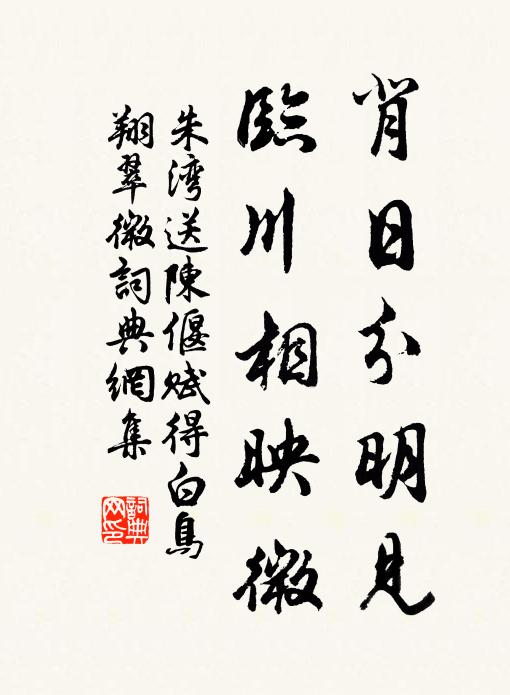 背日分明見
臨川相映微
朱湾送陳偃賦得白鳥
翔翠微詞典網集
詞典
网印